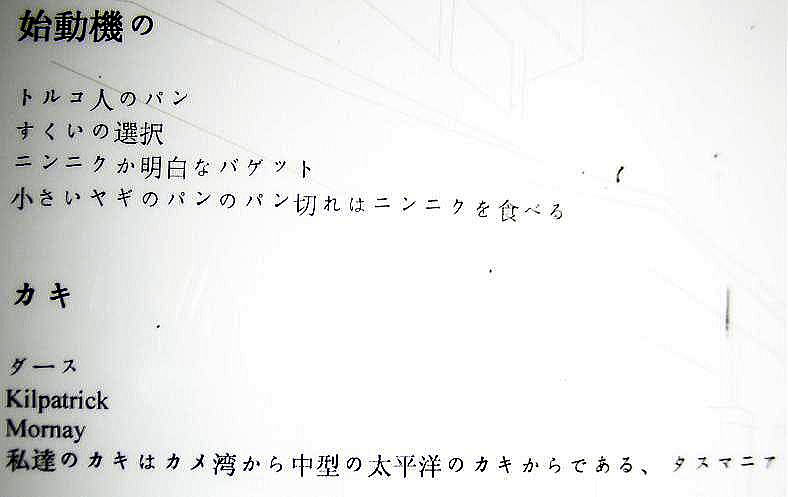 始動機の
トルコ人のパン
すくいの選択
ニンニクか明白なバゲット
小さいヤギのパンのパン切れはニンニクを食べる
カキ
ダース
Kilpatrick
Mornay
私達のカキはカメ湾から中型の太平洋のカキからである、タスマニア